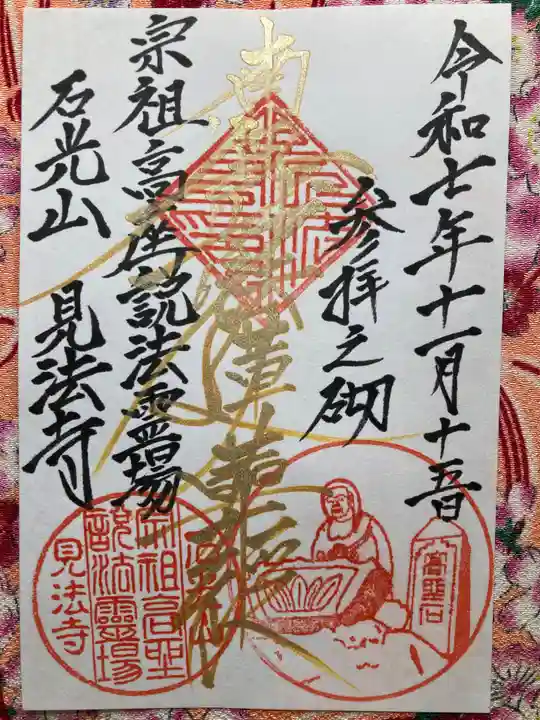 令和七年十一月十五日
参拝之砌
南無妙法蓮華経
宗祖高座説法霊場
石光山 見法寺
高座石
宗祖高座
説法霊場
見法寺